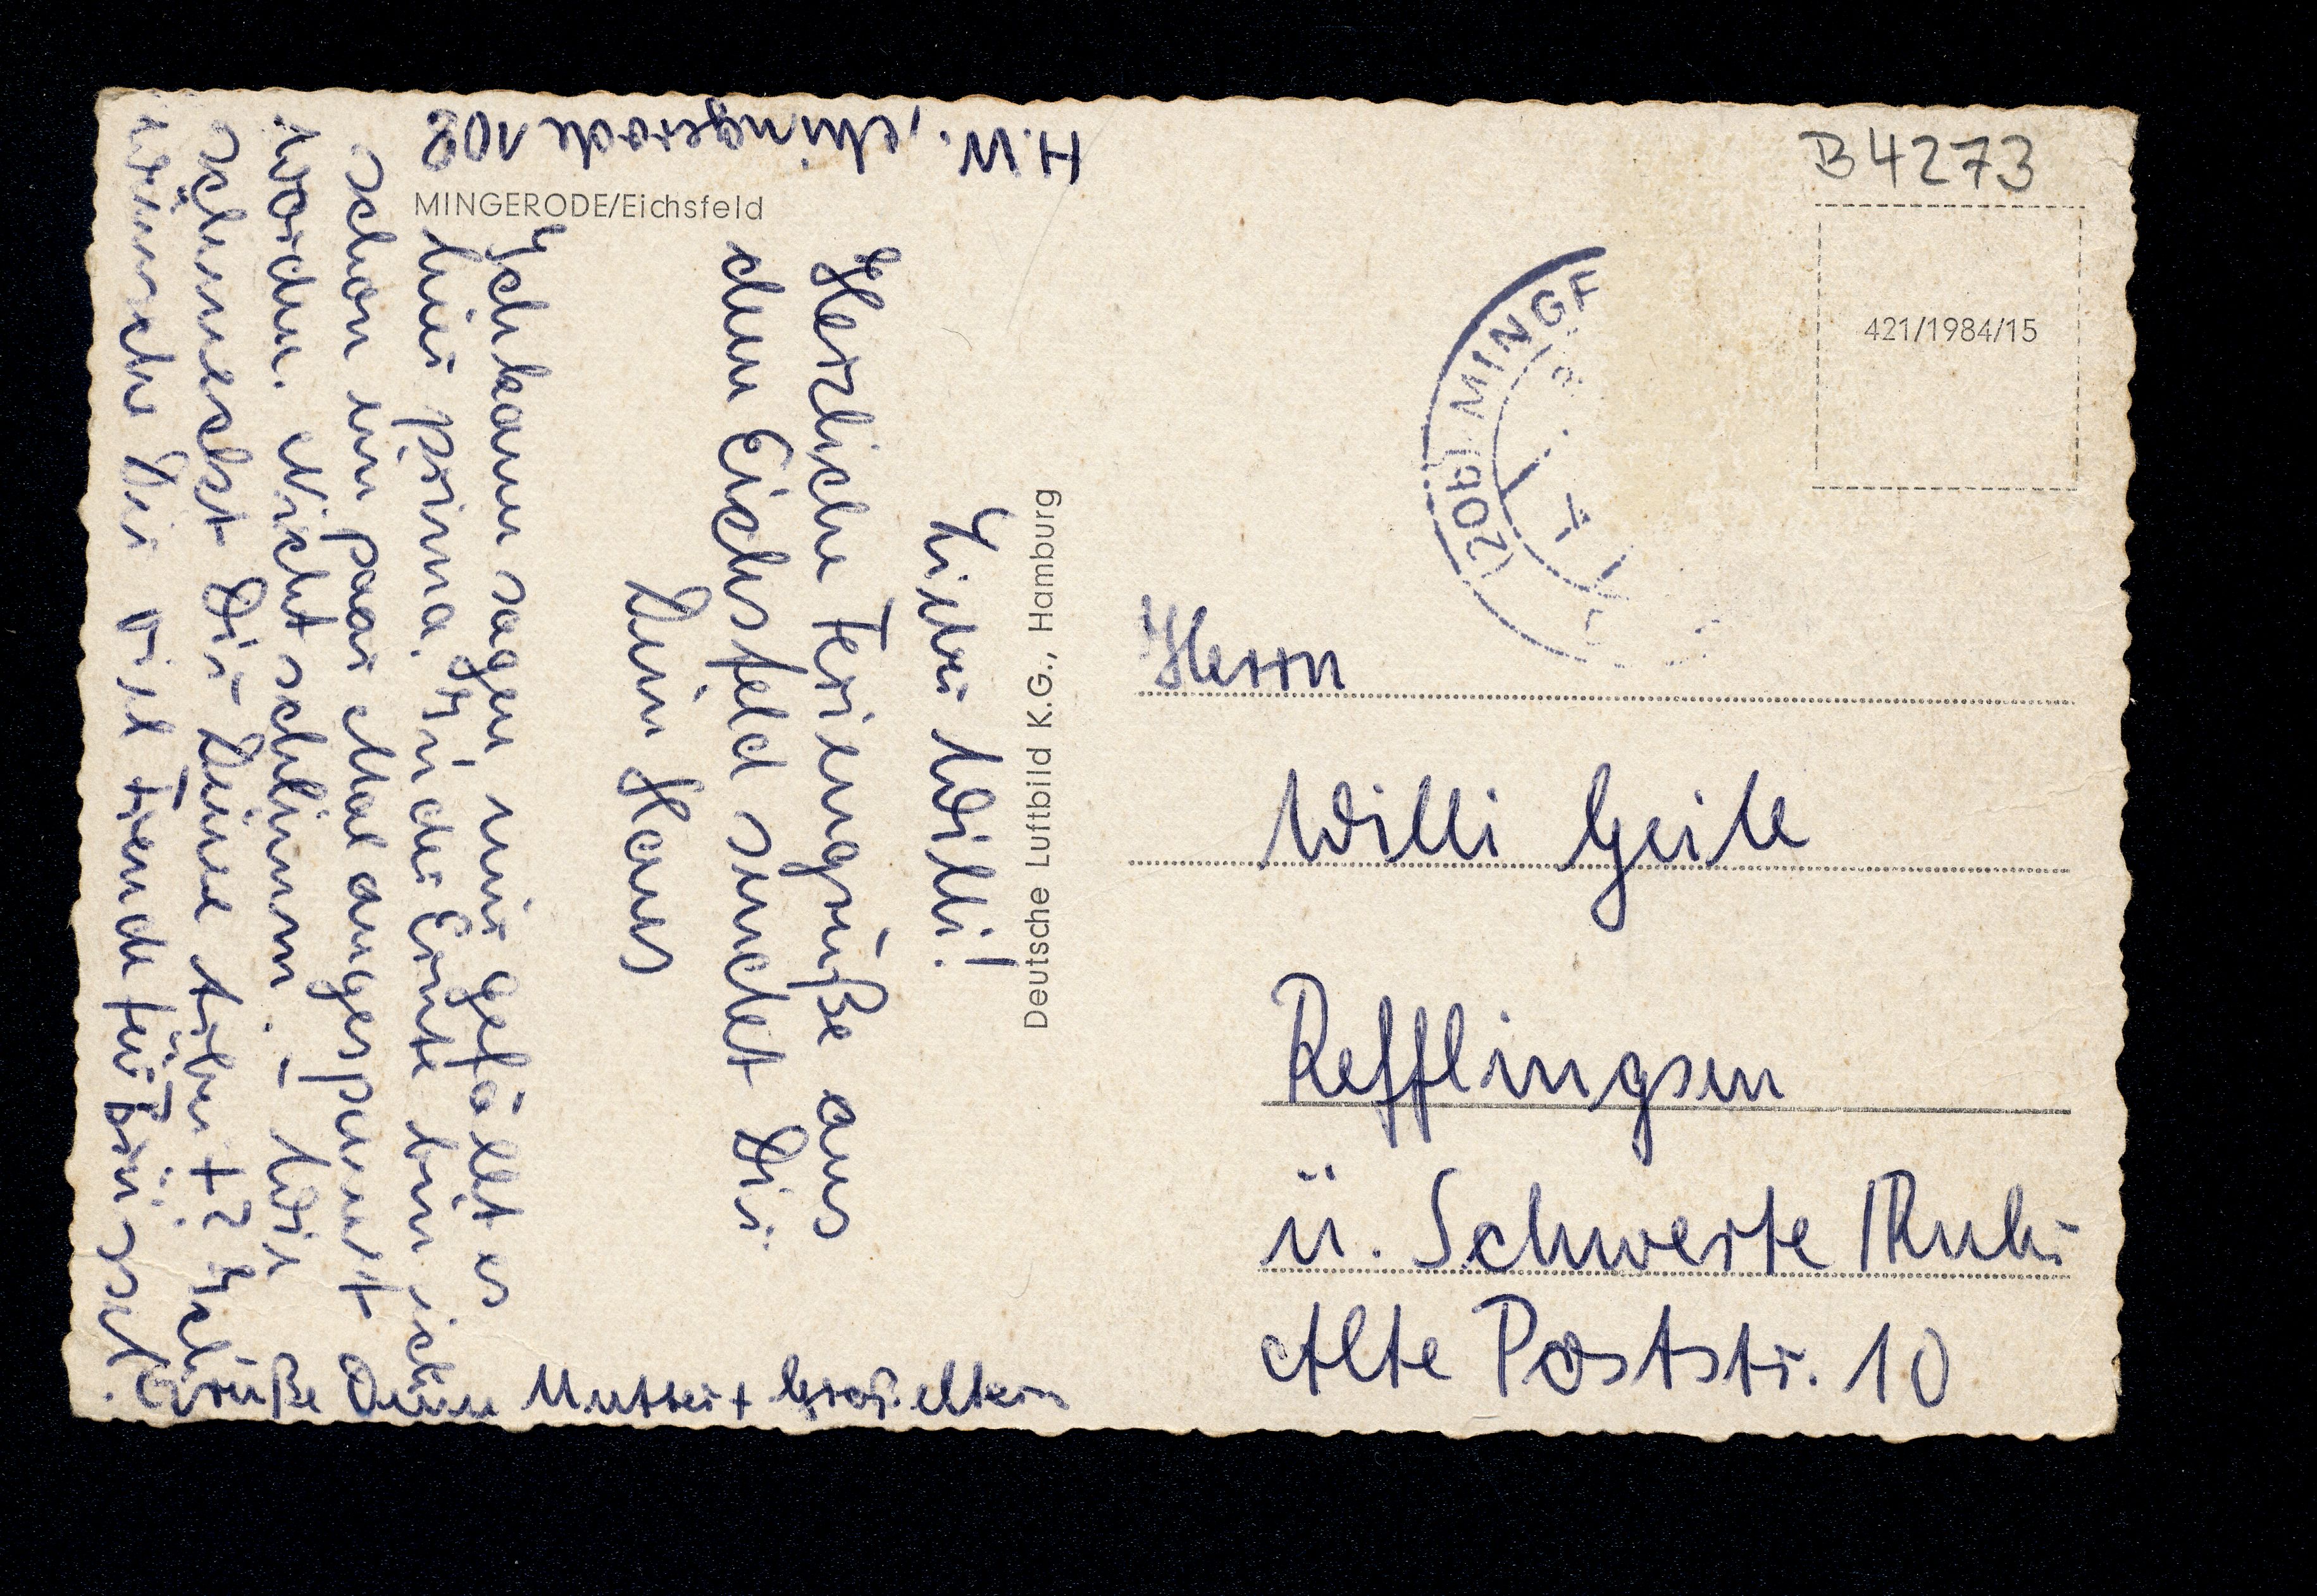 H.W., Mingerode 108
MINGERODE/Eichsfeld
Lieber Willi!
Herzliche Feriengrüße aus
dem Eichsfeld sendet Dir
Dein Hans
Ich kann sagen mir gefällt es
hier prima. In der Ernte bin ich
schon ein paar Mal angespannt
worden. Nicht schlimm. – Wie
schmeckt Dir Deine Arbeit? Ich
wünsche Dir viel Freude für Dringsel.
Grüße Deine Mutter + Großeltern
Deutsche Luftbild K.G., Hamburg
B4273
421/1984/15
(20b) MINGE
Herrn
Willi Geile
Refflingsen
ü. Schwerte/Ruhr
Alte Poststr. 10